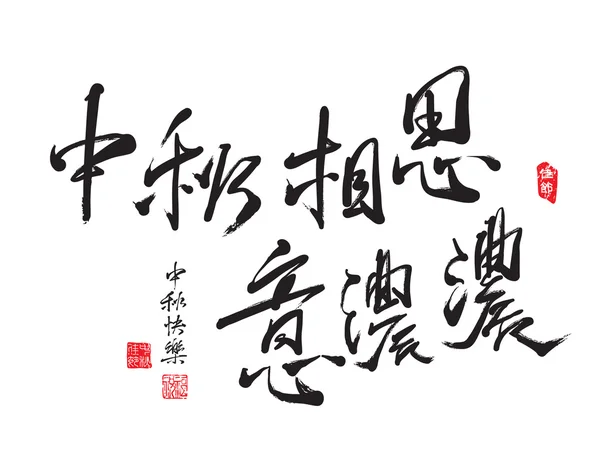 中秋相思
意濃濃
中秋快樂
佳節
中秋佳節